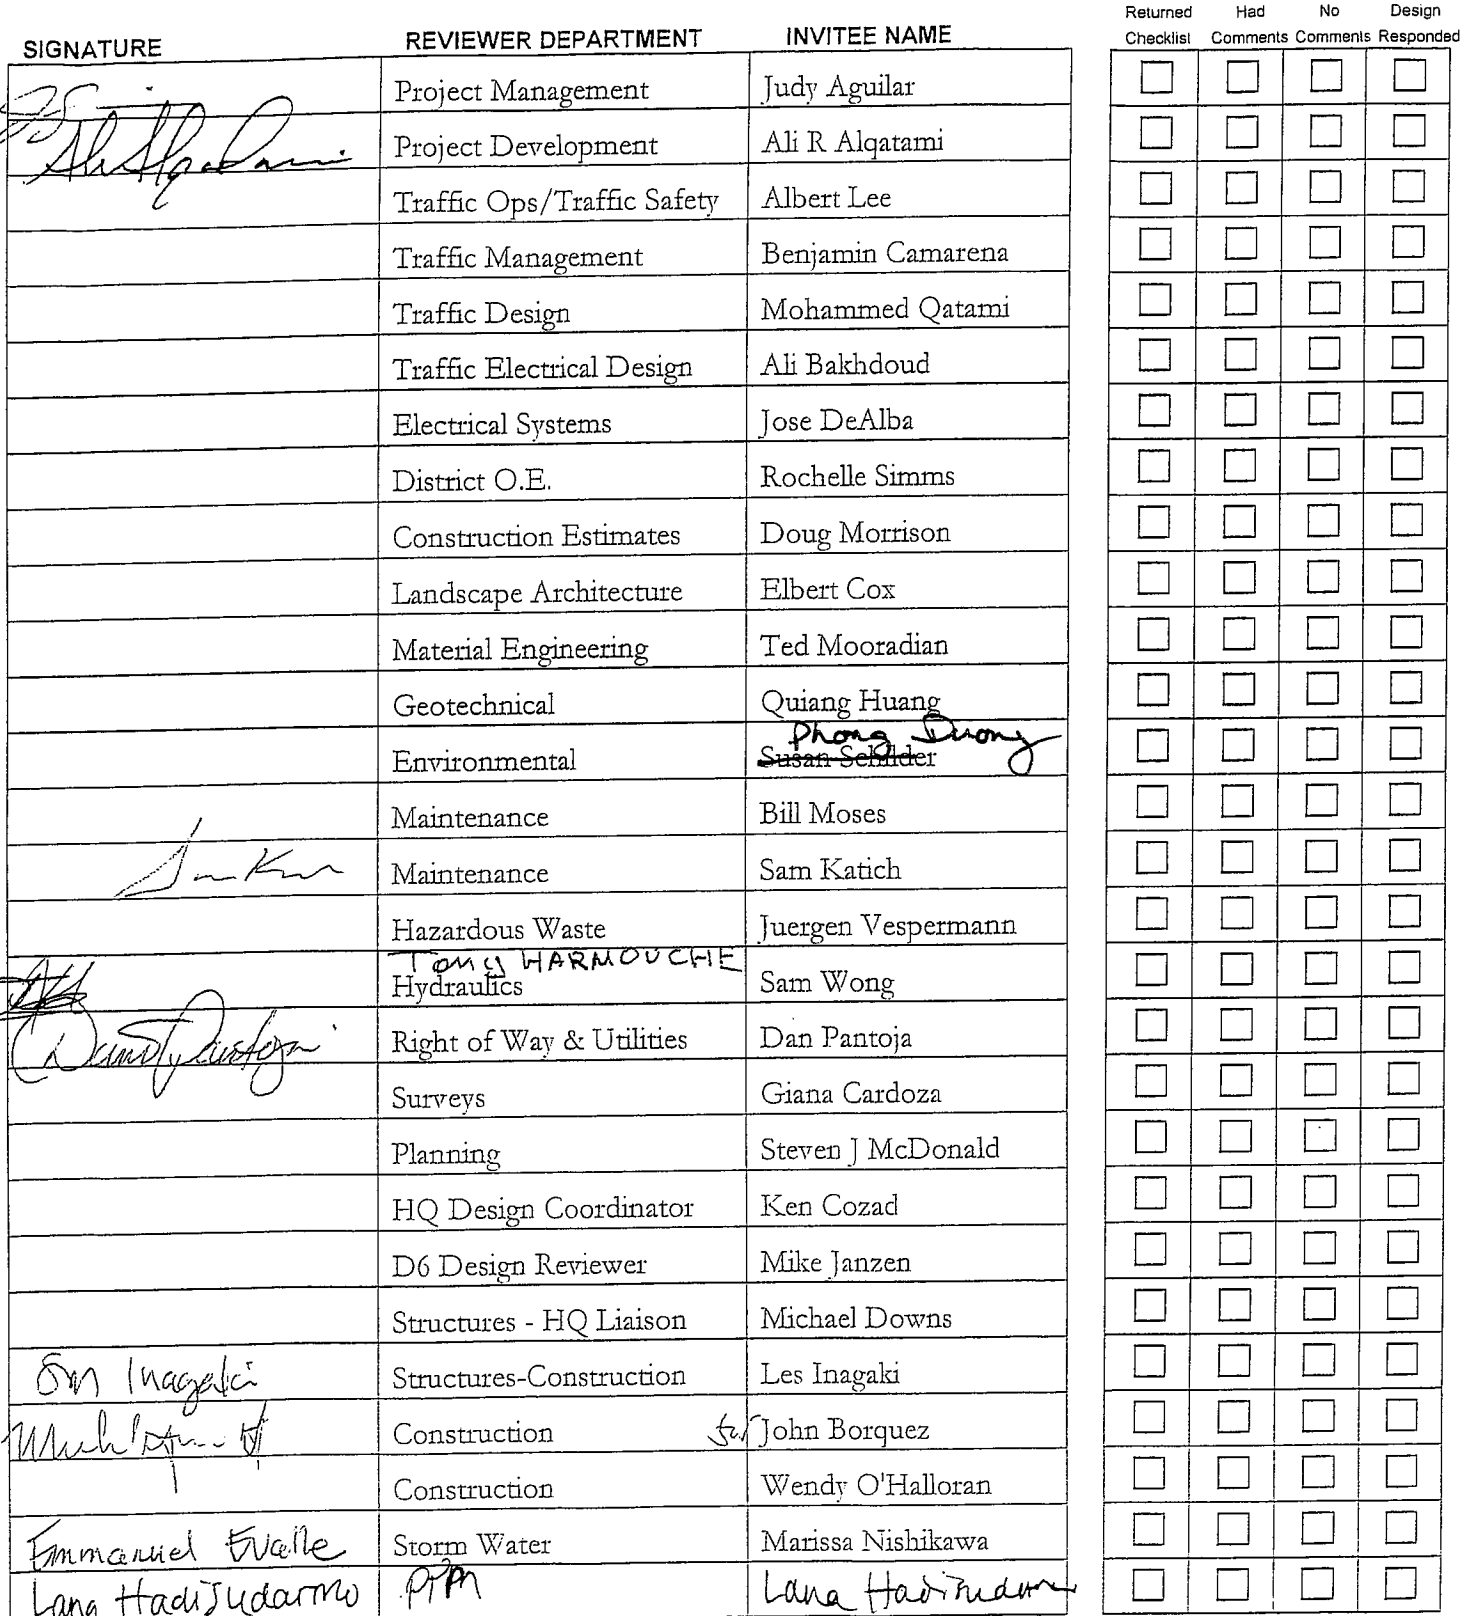 Returned Had No Design
SIGNATURE REVIEWER DEPARTMENT INVITEE NAME Checklist Comments Comments Responded
Project Management Judy Aguilar
Project Development Ali R Alqatami
Traffic Ops/Traffic Safety Albert Lee
Traffic Management Benjamin Camarena
Traffic Design Mohammed Qatami
Traffic Electrical Design Ali Bakhdoud
Electrical Systems Jose DeAlba
District O.E. Rochelle Simms
Construction Estimates Doug Morrison
Landscape Architecture Elbert Cox
Material Engineering Ted Mooradian
Geotechnical Quiang Huang
Phong Duong
Environmental Susan Schilder
Maintenance Bill Moses
Maintenance Sam Katich
Hazardous Waste Juergen Vespermann
Tony HARMOUCHE
Hydraulics Sam Wong
Right of Way & Utilities Dan Pantoja
Surveys Giana Cardoza
Planning Steven J McDonald
HQ Design Coordinator Ken Cozad
D6 Design Reviewer Mike Janzen
Structures - HQ Liaison Michael Downs
Inagaki Structures-Construction Les Inagaki
Construction for John Borquez
Construction Wendy O'Halloran
Emmanuel Evalle Storm Water Marissa Nishikawa
Lana Hadisudarmo PPM Lana Hadisudarmo